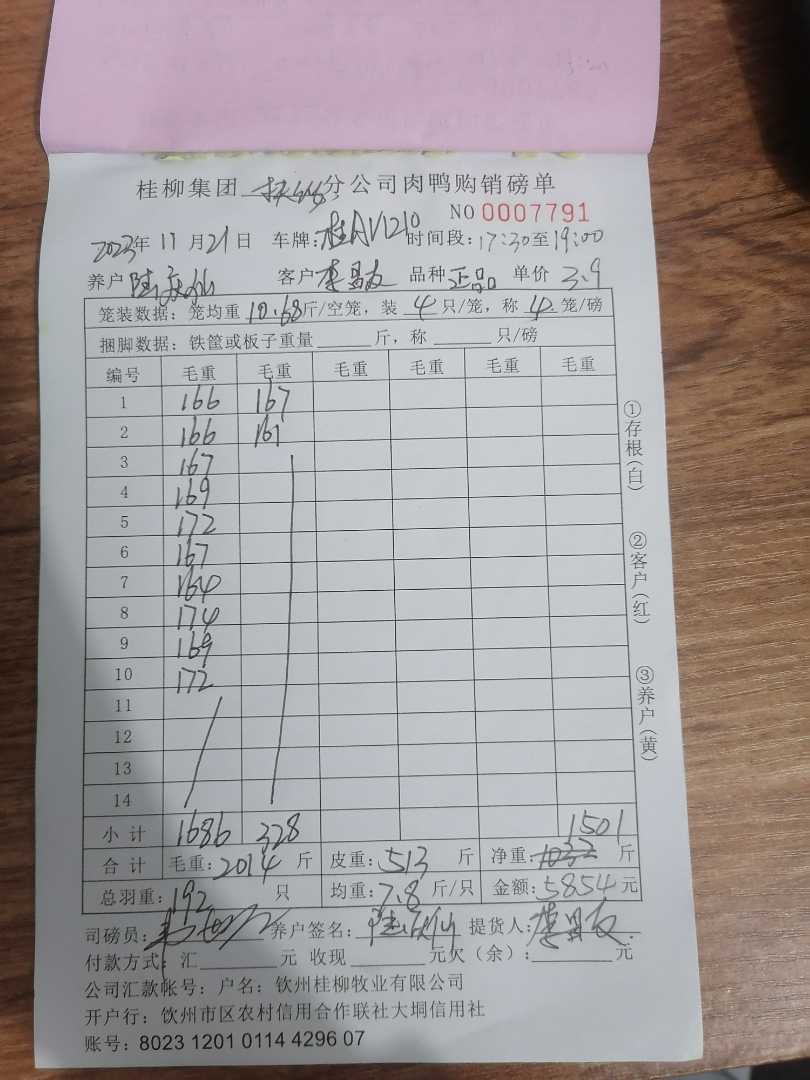 桂柳集团 扶绥分公司肉鸭购销磅单
NO 0007791
2023年 11月21日 车牌:桂AV1210 时间段:17:30至19:00
养户 客户 李昌友 品种 正品 单价 3.9
笼装数据：笼均重 10.68斤/空笼，装 4 只/笼，称 4 笼/磅
捆脚数据：铁筐或板子重量 斤，称 只/磅
编号 毛重 毛重 毛重 毛重 毛重 毛重
1 166 167
2 166 161
3 167
4 169
5 172
6 167
7 164
8 174
9 169
10 172
11
12
13
14
小计 1686 328 1501
合计 毛重:2014 斤 皮重:513 斤 净重: 斤
总羽重:192 只 均重:7.8 斤/只 金额:5854元
司磅员: 养户签名: 提货人:李昌友
付款方式：汇 元 收现 元欠（余）: 元
公司汇款帐号：户名：钦州桂柳牧业有限公司
开户行：钦州市区农村信用合作联社大垌信用社
账号：8023 1201 0114 4296 07
①存根(白)
②客户(红)
③养户(黄)